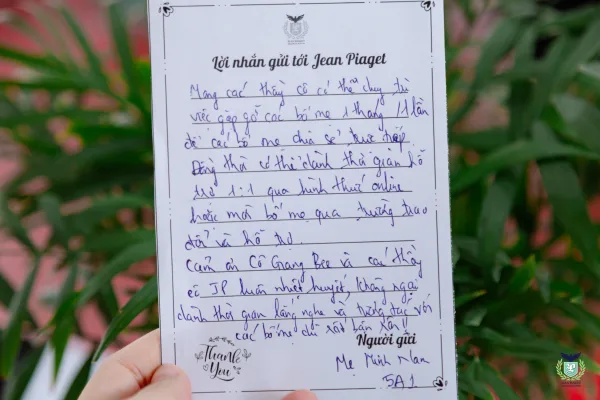 Lời nhắn gửi tới Jean Piaget
Mong các thầy cô có thể duy trì
việc gặp gỡ các bố mẹ 1 tháng / 1 lần
để các bố mẹ chia sẻ trực tiếp
Đồng thời có thể dành thời gian hỗ
trợ 1:1 qua hình thức online
hoặc mời bố mẹ qua trường trao
đổi và hỗ trợ.
Cảm ơn Cô Giang Bee và các thầy
cô JP luôn nhiệt huyết, không ngại
dành thời gian lắng nghe và tương tác với
các bố mẹ dù rất bận rộn!!
Người gửi
Thank
You
Mẹ Minh Nam
5A1